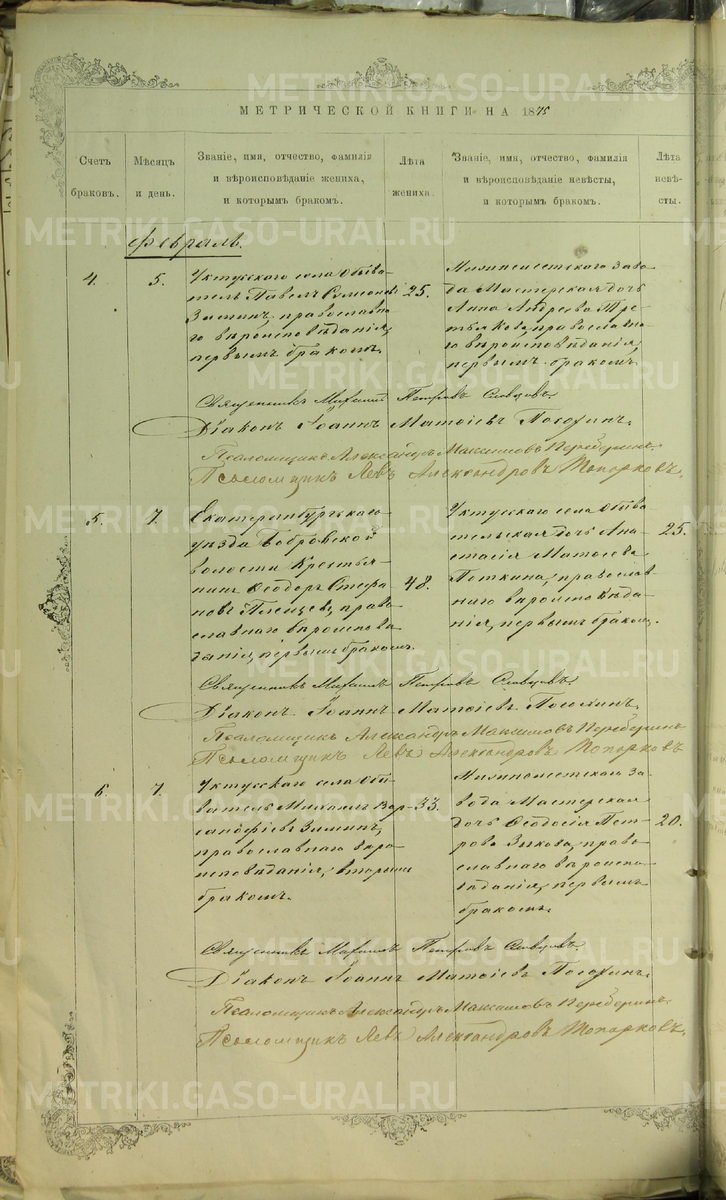 МЕТРИЧЕСКОЙ КНИГИ НА 1875
Счетъ браковъ.
Мѣсяцъ и день.
Званіе, имя, отчество, фамилія
и вѣроисповѣданіе жениха,
и которымъ бракомъ.
Лѣта жениха.
Званіе, имя, отчество, фамилія
и вѣроисповѣданіе невѣсты,
и которымъ бракомъ.
Лѣта невѣ-
сты.
Февраль.
4.
5.
Уктусскаго села Обыва-
тель Павелъ Симеоновъ
Зиминъ, православна-
го вѣроисповѣданія,
первымъ бракомъ.
25.
Нижнеисетскаго Заво-
да Мастерская дочь
Анна Андреева Тре-
тьякова, православна-
го вѣроисповѣданія,
первымъ бракомъ.
Священникъ Михаилъ Петровъ
Діаконъ Іоаннъ Матѳіевъ
Псаломщикъ Александръ Максимовъ
Псаломщикъ Левъ Александровъ Топорковъ.
5.
7.
Екатеринбургскаго
уѣзда Бобровской
волости Крестья-
нинъ Ѳеодоръ Стефа-
новъ право-
славнаго вѣроисповѣ-
данія, первымъ бракомъ.
48.
Уктусскаго села Обыва-
тельская дочь Ана-
стасія Матѳеева
православ-
наго вѣроисповѣда-
нія, первымъ бракомъ.
25.
Священникъ Михаилъ Петровъ
Діаконъ Іоаннъ Матѳіевъ
Псаломщикъ Александръ Максимовъ
Псаломщикъ Левъ Александровъ Топорковъ
6.
7.
Уктусскаго села Обы-
ватель Михаилъ Вар-
санофіевъ Зиминъ,
православнаго вѣро-
исповѣданія, вторымъ
бракомъ.
33.
Нижнеисетскаго За-
вода Мастерская
дочь Ѳеодосія Пет-
рова Зыкова, право-
славнаго вѣроиспо-
вѣданія, первымъ
бракомъ.
20.
Священникъ Михаилъ Петровъ
Діаконъ Іоаннъ Матѳіевъ
Псаломщикъ Александръ Максимовъ
Псаломщикъ Левъ Александровъ Топорковъ.
METRIKI.GASO-URAL.RU